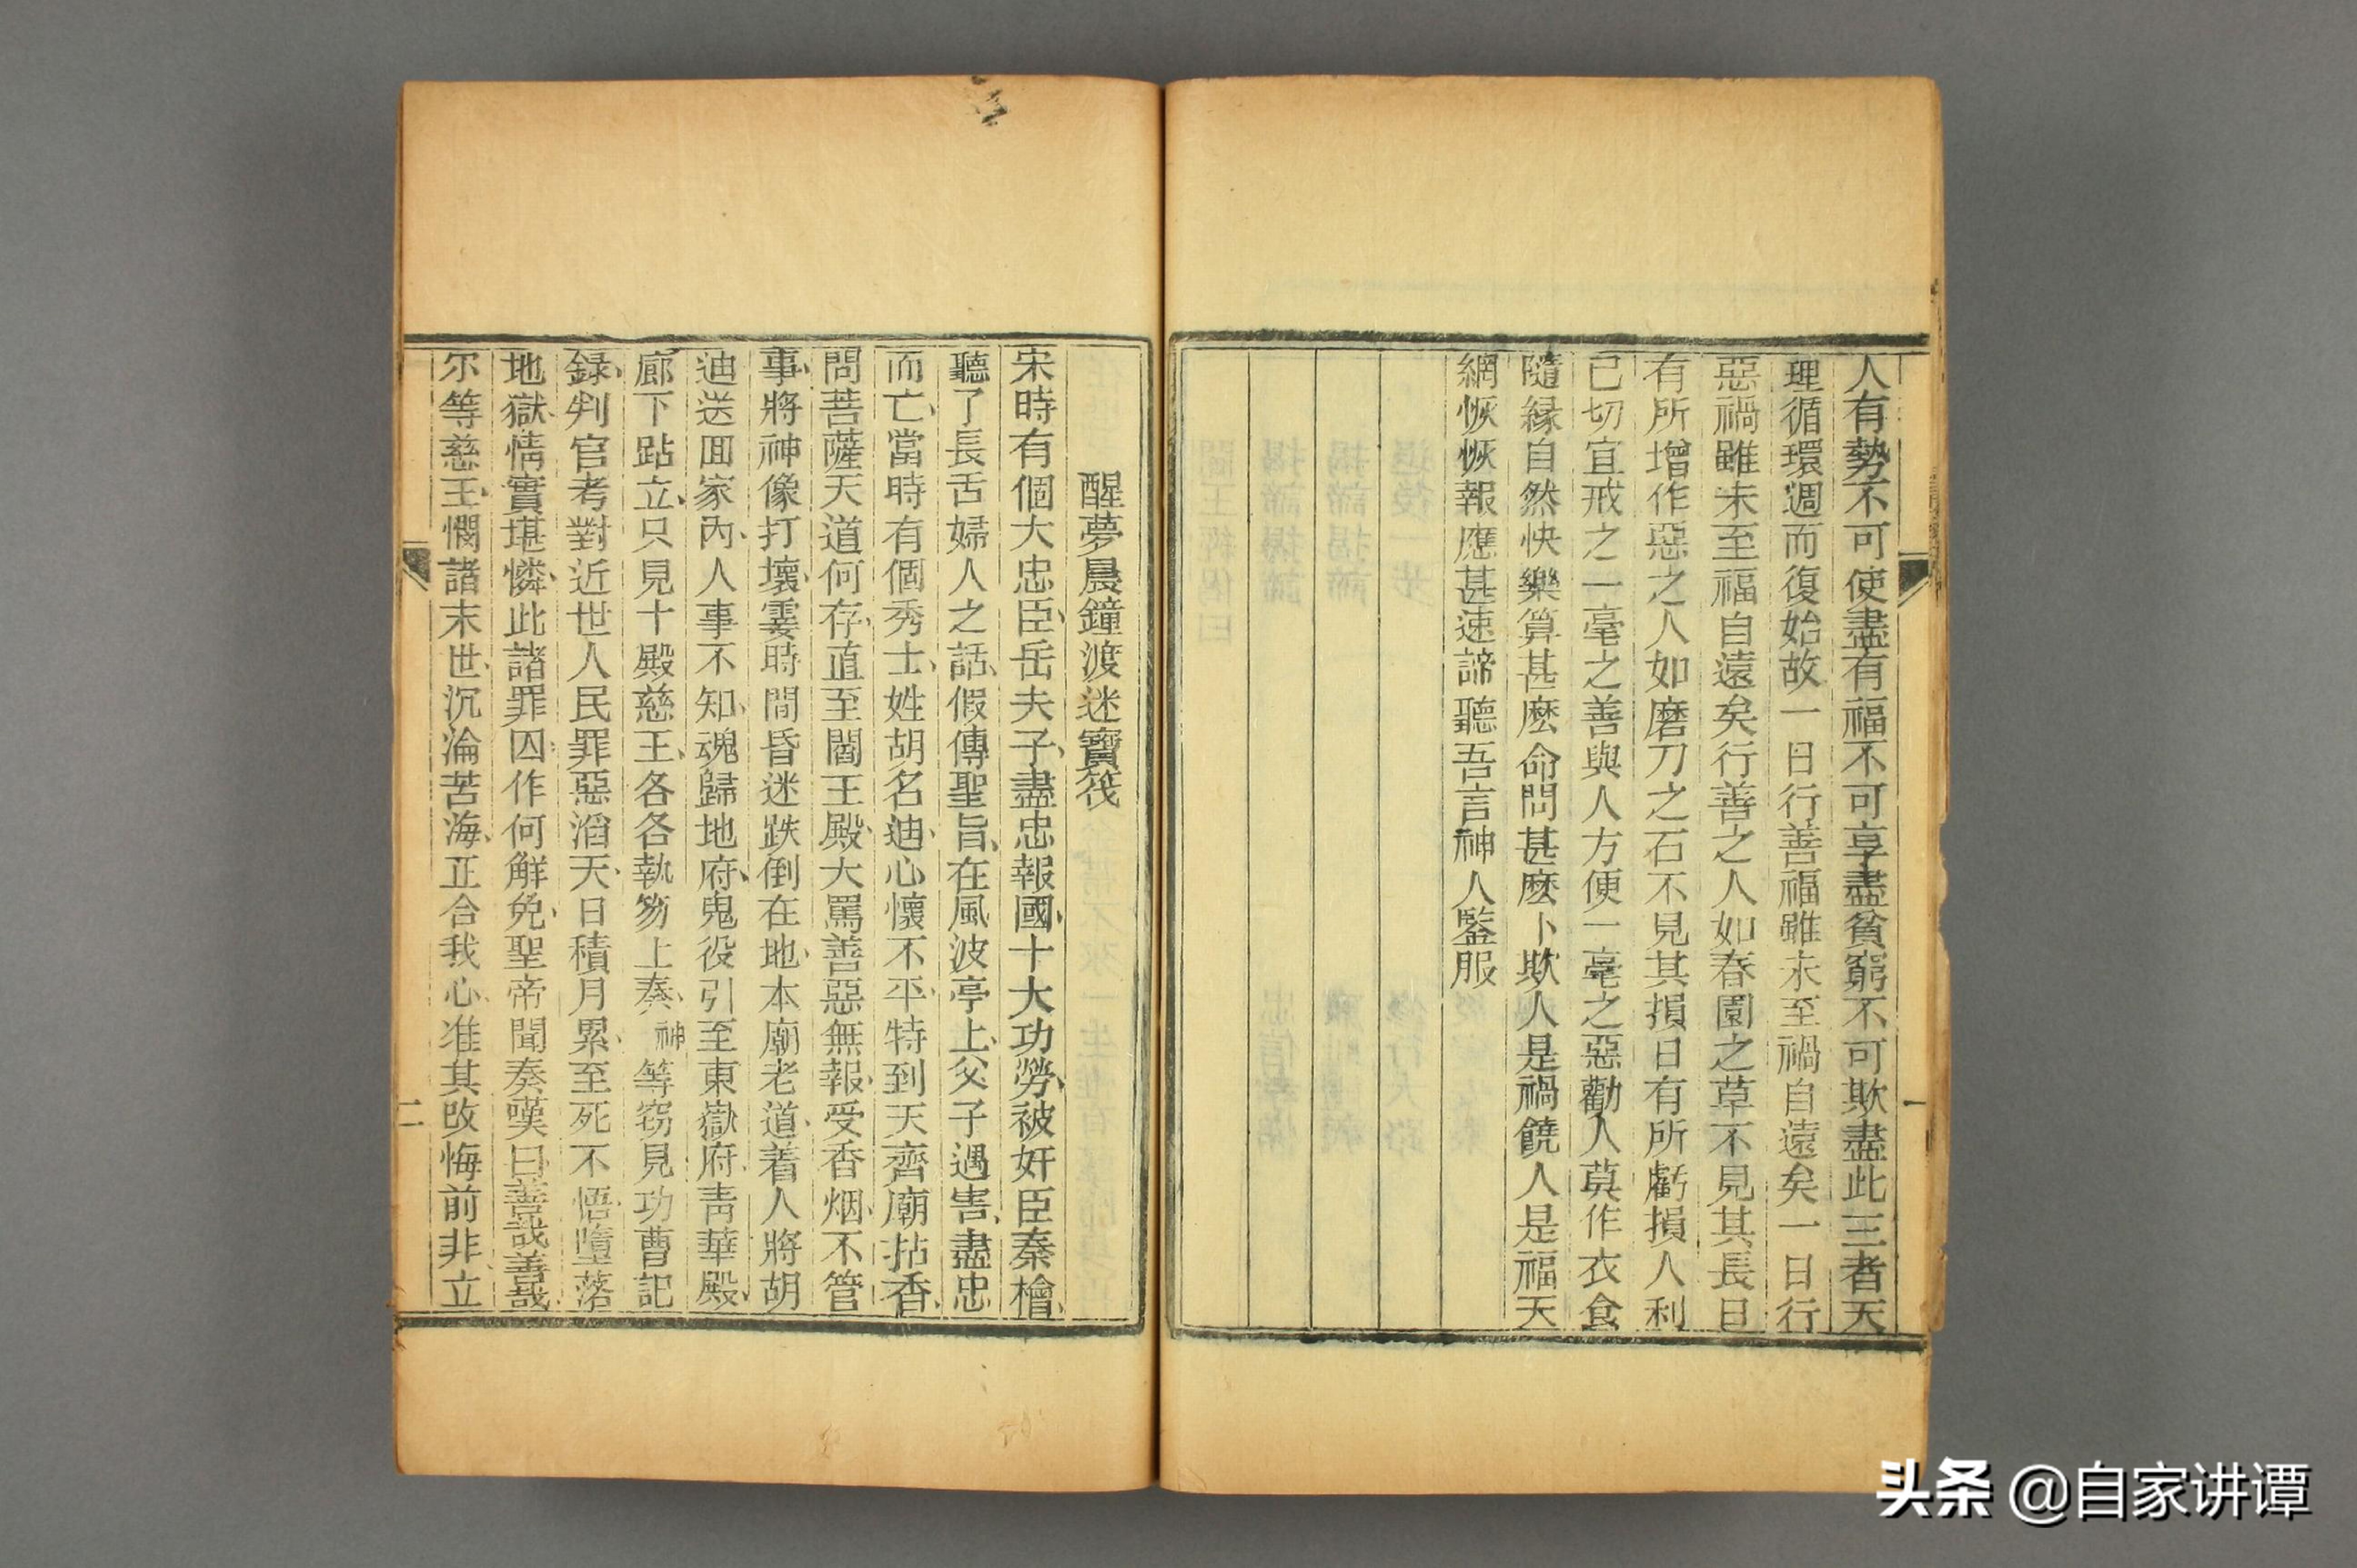 人有勢不可使盡有福不可享盡貧窮不可欺盡此三者天
理循環週而復始故一日行善福雖未至禍自遠矣一日行
惡禍雖未至福自遠矣行善之人如春園之草不見其長日
有所增作惡之人如磨刀之石不見其損日有所虧損人利
己切宜戒之一毫之善與人方便一毫之惡勸人莫作衣食
隨緣自然快樂算甚麽命問甚麽卜欺人是禍饒人是福天
網恢恢報應甚速諦聽吾言神人鑒服
一
醒夢晨鐘渡迷寶筏
宋時有個大忠臣、岳夫子、盡忠報國、十大功勞、被奸臣秦檜、
聽了長舌婦人之話、假傳聖旨、在風波亭上、父子遇害、盡忠
而亡、當時有個秀士、姓胡名迪、心懷不平、特到天齊廟拈香、
問菩薩天道何存、直至閻王殿、大罵善惡無報、受香烟、不管
事、將神像打壞、霎時間昏迷跌倒在地、本廟老道、着人將胡
迪送回家內、人事不知、魂歸地府、鬼役引至東嶽府、靑華殿、
廊下跕立、只見十殿慈王、各各執笏上奏、神等窃見功曹記
録、判官考對近世人民罪惡滔天、日積月累、至死不悟、墮落
地獄、情實堪憐、此諸罪囚作何解免、聖帝聞奏嘆曰善哉善哉
尔等慈王、憫諸末世、沉淪苦海、正合我心、准其改悔前非、立
二
头条 @自家讲谭